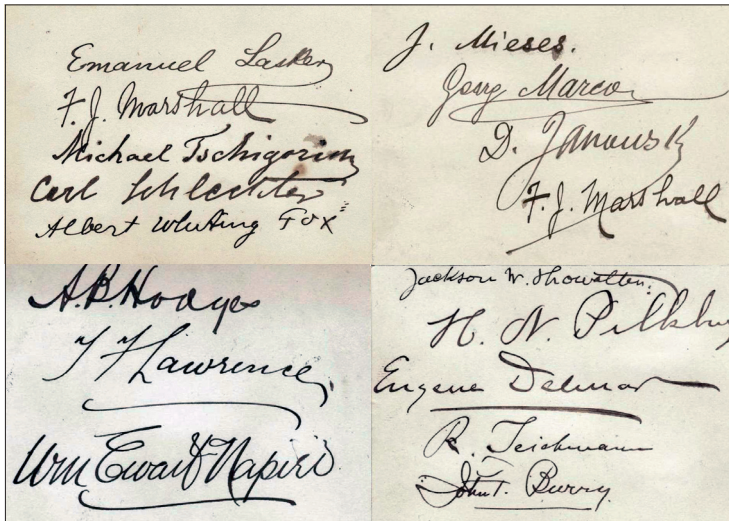 Emanuel Lasker
F. J. Marshall
Michael Tschigorin
Carl Schlechter
Albert Whiting Fox
J. Mieses.
Georg Marco
D. Janowski
F. J. Marshall
A. B. Hodges
T F Lawrence
Wm Ewart Napier
Jackson W. Showalter.
H. N. Pillsbury
Eugene Delmar
R. Teichmann
John F. Barry.